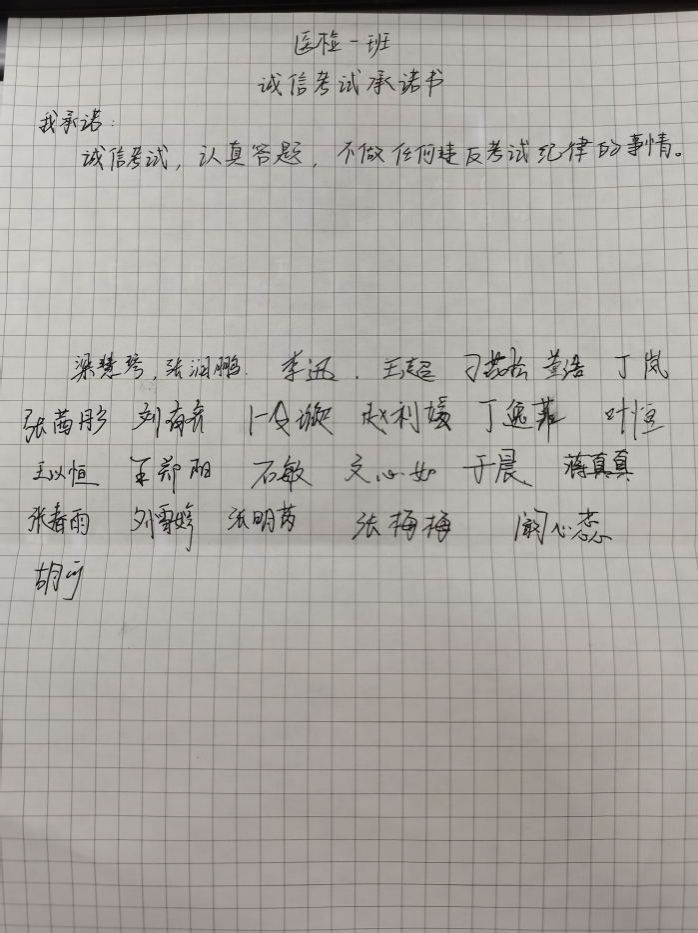 医检一班
诚信考试承诺书
我承诺:
诚信考试,认真答题,不做任何违反考试纪律的事情。
梁慧琴,张润鹏. 李迅. 王超 董浩 丁岚
张茜彤 刘 赵利媛 丁逸菲 叶恒
王以恒 王郑阳 石敏 文心如 于晨 蒋真真
张春雨 刘雪婷 张明芮 张梅梅 阚心蕊
胡可